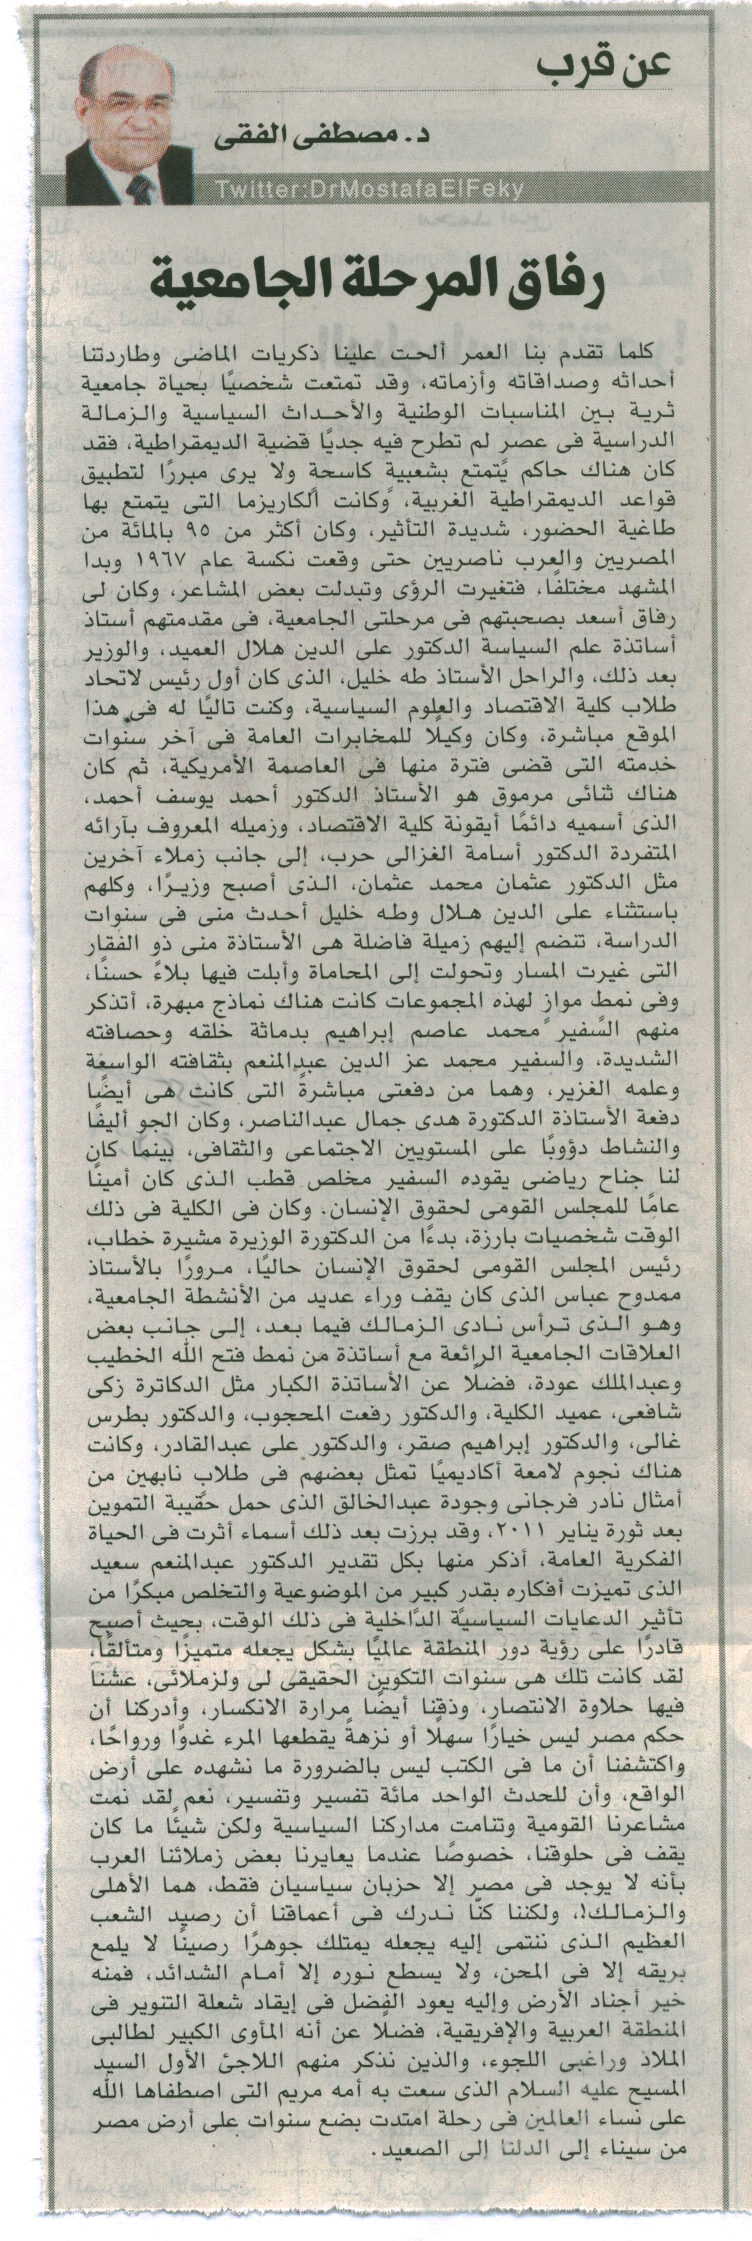 عن قرب
د. مصطفى الفقى
Twitter:DrMostafaElFeky
رفاق المرحلة الجامعية
كلما تقدم بنا العمر ألحت علينا ذكريات الماضى وطاردتنا
أحداثه وصداقاته وأزماته، وقد تمتعت شخصيًا بحياة جامعية
ثرية بين المناسبات الوطنية والأحداث السياسية والزمالة
الدراسية فى عصرٍ لم تطرح فيه جديًا قضية الديمقراطية، فقد
كان هناك حاكم يتمتع بشعبيةٍ كاسحةٍ ولا يرى مبررًا لتطبيق
قواعد الديمقراطية الغربية، وكانت الكاريزما التى يتمتع بها
طاغية الحضور، شديدة التأثير، وكان أكثر من ٩٥ بالمائة من
المصريين والعرب ناصريين حتى وقعت نكسة عام ١٩٦٧ وبدا
المشهد مختلفًا، فتغيرت الرؤى وتبدلت بعض المشاعر، وكان لى
رفاق أسعد بصحبتهم فى مرحلتى الجامعية، فى مقدمتهم أستاذ
أساتذة علم السياسة الدكتور على الدين هلال العميد، والوزير
بعد ذلك، والراحل الأستاذ طه خليل، الذى كان أول رئيس لاتحاد
طلاب كلية الاقتصاد والعلوم السياسية، وكنت تاليًا له فى هذا
الموقع مباشرة، وكان وكيلًا للمخابرات العامة فى آخر سنوات
خدمته التى قضى فترة منها فى العاصمة الأمريكية، ثم كان
هناك ثنائى مرموق هو الأستاذ الدكتور أحمد يوسف أحمد،
الذى أسميه دائمًا أيقونة كلية الاقتصاد، وزميله المعروف بآرائه
المتفردة الدكتور أسامة الغزالى حرب، إلى جانب زملاء آخرين
مثل الدكتور عثمان محمد عثمان، الذى أصبح وزيرًا، وكلهم
باستثناء على الدين هلال وطه خليل أحدث منى فى سنوات
الدراسة، تنضم إليهم زميلة فاضلة هى الأستاذة منى ذو الفقار
التى غيرت المسار وتحولت إلى المحاماة وأبلت فيها بلاءً حسنًا،
وفى نمط موازٍ لهذه المجموعات كانت هناك نماذج مبهرة، أتذكر
منهم السفير محمد عاصم إبراهيم بدماثة خلقه وحصافته
الشديدة، والسفير محمد عز الدين عبدالمنعم بثقافته الواسعة
وعلمه الغزير، وهما من دفعتى مباشرةً التى كانت هى أيضًا
دفعة الأستاذة الدكتورة هدى جمال عبدالناصر، وكان الجو أليفًا
والنشاط دؤوبًا على المستويين الاجتماعى والثقافى، بينما كان
لنا جناح رياضى يقوده السفير مخلص قطب الذى كان أمينًا
عامًا للمجلس القومى لحقوق الإنسان، وكان فى الكلية فى ذلك
الوقت شخصيات بارزة، بدءًا من الدكتورة الوزيرة مشيرة خطاب،
رئيس المجلس القومى لحقوق الإنسان حاليًا، مرورًا بالأستاذ
ممدوح عباس الذى كان يقف وراء عديد من الأنشطة الجامعية،
وهو الذى ترأس نادى الزمالك فيما بعد، إلى جانب بعض
العلاقات الجامعية الرائعة مع أساتذة من نمط فتح الله الخطيب
وعبدالملك عودة، فضلًا عن الأساتذة الكبار مثل الدكاترة زكى
شافعى، عميد الكلية، والدكتور رفعت المحجوب، والدكتور بطرس
غالى، والدكتور إبراهيم صقر، والدكتور على عبدالقادر، وكانت
هناك نجوم لامعة أكاديميًا تمثل بعضهم فى طلابٍ نابهين من
أمثال نادر فرجانى وجودة عبدالخالق الذى حمل حقيبة التموين
بعد ثورة يناير ٢٠١١، وقد برزت بعد ذلك أسماء أثرت فى الحياة
الفكرية العامة، أذكر منها بكل تقدير الدكتور عبدالمنعم سعيد
الذى تميزت أفكاره بقدرٍ كبير من الموضوعية والتخلص مبكرًا من
تأثير الدعايات السياسية الداخلية فى ذلك الوقت، بحيث أصبح
قادرًا على رؤية دور المنطقة عالميًا بشكل يجعله متميزًا ومتألقًا،
لقد كانت تلك هى سنوات التكوين الحقيقى لى ولزملائى، عشنا
فيها حلاوة الانتصار، وذقنا أيضًا مرارة الانكسار، وأدركنا أن
حكم مصر ليس خيارًا سهلًا أو نزهةً يقطعها المرء غدوًا ورواحًا،
واكتشفنا أن ما فى الكتب ليس بالضرورة ما نشهده على أرض
الواقع، وأن للحدث الواحد مائة تفسير وتفسير، نعم لقد نمت
مشاعرنا القومية وتنامت مداركنا السياسية ولكن شيئًا ما كان
يقف فى حلوقنا، خصوصًا عندما يعايرنا بعض زملائنا العرب
بأنه لا يوجد فى مصر إلا حزبان سياسيان فقط، هما الأهلى
والزمالك!، ولكننا كنّا ندرك فى أعماقنا أن رصيد الشعب
العظيم الذى ننتمى إليه يجعله يمتلك جوهرًا رصينًا لا يلمع
بريقه إلا فى المحن، ولا يسطع نوره إلا أمام الشدائد، فمنه
خير أجناد الأرض وإليه يعود الفضل فى إيقاد شعلة التنوير فى
المنطقة العربية والإفريقية، فضلًا عن أنه المأوى الكبير لطالبى
الملاذ وراغبى اللجوء، والذين نذكر منهم اللاجئ الأول السيد
المسيح عليه السلام الذى سعت به أمه مريم التى اصطفاها الله
على نساء العالمين فى رحلة امتدت بضع سنوات على أرض مصر
من سيناء إلى الدلتا إلى الصعيد.